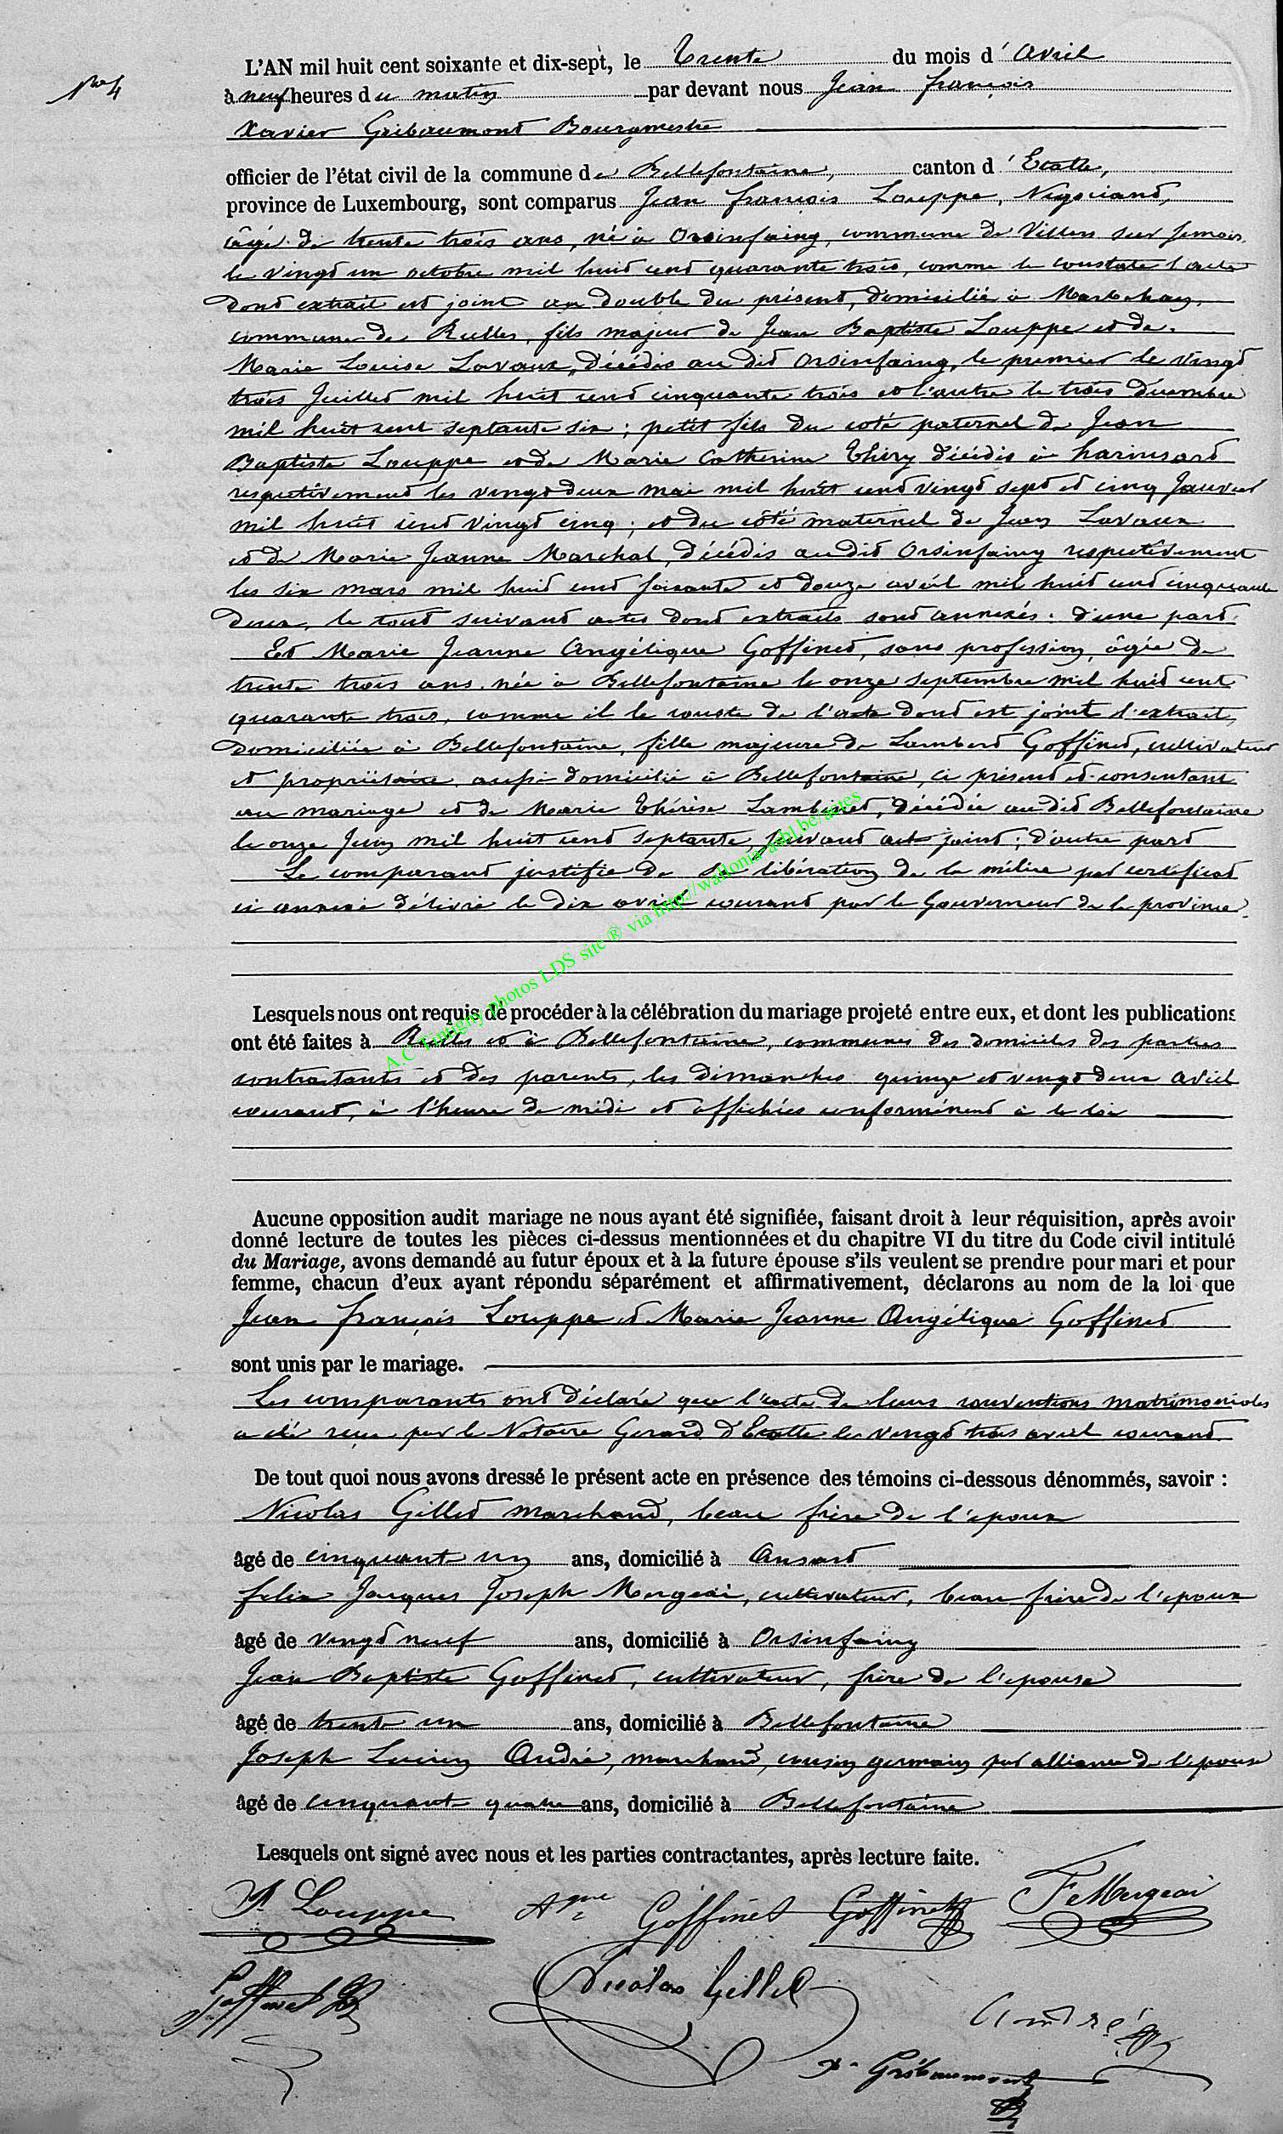 No 4
L'AN mil huit cent soixante et dix-sept, le Trente du mois d'Avril
à neuf heures du matin par devant nous Jean François
Xavier Gribaumont Bourgmestre
officier de l'état civil de la commune de Bellefontaine, canton d'Etalle,
province de Luxembourg, sont comparus Jean François Louppe, Négociant,
âgé de trente trois ans, né à Orsinfaing, commune de Villers sur Semois
le vingt un octobre mil huit cent quarante trois, comme le constate l'acte
dont extrait est joint au double du présent, domicilié à
commune de Rulles, fils majeur de Jean Baptiste Louppe et de
Marie Louise Lavaux, décédés au dit Orsinfaing, le premier le vingt
trois Juillet mil huit cent cinquante trois et l'autre le trois décembre
mil huit cent septante six ; petit fils du coté paternel de Jean
Baptiste Louppe et de Marie Catherine Thiry décédés à harinsart
respectivement les vingt deux mai mil huit cent vingt sept et cinq Janvier
mil huit cent vingt cinq ; et du côté maternel de Jean Lavaux
et de Marie Jeanne Marchal, décédés au dit Orsinfaing respectivement
les six mars mil huit cent soixante et douze avril mil huit cent cinquante
deux, le tout suivant actes dont extraits sont annexés : d'une part.
Et Marie Jeanne Angélique Goffinet, sans profession, âgée de
trente trois ans, née à Bellefontaine le onze septembre mil huit cent
quarante trois, comme il le conste de l'acte dont est joint l'extrait,
domiciliée à Bellefontaine, fille majeure de Lambert Goffinet, cultivateur
et propriétaire aussi domicilié à Bellefontaine, ci présent et consentant
au mariage et de Marie Thérèse Lambinet, décédée au dit Bellefontaine
le onze Juin mil huit cent septante, suivant act joint ; d'autre part
Le comparant justifie de sa libération de la milice par certificat
ci annexé délivré le dix avril courant par le Gouverneur de la province.
A.C Tintigny photos LDS site ® via http://wallonia-asbl.be/actes
Lesquels nous ont requis de procéder à la célébration du mariage projeté entre eux, et dont les publications
ont été faites à Rulles et à Bellefontaine, communes des domiciles des parties
contractantes et des parents, les dimanches quinze et vingt deux avril
courant, à l'heure de midi et affichées conformément à la loi
Aucune opposition audit mariage ne nous ayant été signifiée, faisant droit à leur réquisition, après avoir
donné lecture de toutes les pièces ci-dessus mentionnées et du chapitre VI du titre du Code civil intitulé
du Mariage, avons demandé au futur époux et à la future épouse s'ils veulent se prendre pour mari et pour
femme, chacun d'eux ayant répondu séparément et affirmativement, déclarons au nom de la loi que
Jean François Louppe et Marie Jeanne Angélique Goffinet
sont unis par le mariage.
Les comparants ont déclaré que l'acte de leurs conventions matrimoniales
a été reçu par le Notaire Gerard d'Etalle le vingt trois avril courant.
De tout quoi nous avons dressé le présent acte en présence des témoins ci-dessous dénommés, savoir :
Nicolas Gillet marchand, beau frère de l'époux
âgé de cinquante un ans, domicilié à Ansart
Felix Jacques Joseph Mergeai, cultivateur, beau frère de l'époux
âgé de vingt neuf ans, domicilié à Orsinfaing
Jean Baptiste Goffinet, cultivateur, frère de l'épouse
âgé de trente un ans, domicilié à Bellefontaine
Joseph Lucien André, marchand, cousin germain par alliance de l'épouse
âgé de cinquante quatre ans, domicilié à Bellefontaine
Lesquels ont signé avec nous et les parties contractantes, après lecture faite.
Louppe Goffinet Goffinet F Mergeai
Goffinet Nicolas Gillet André
X. Gribaumont